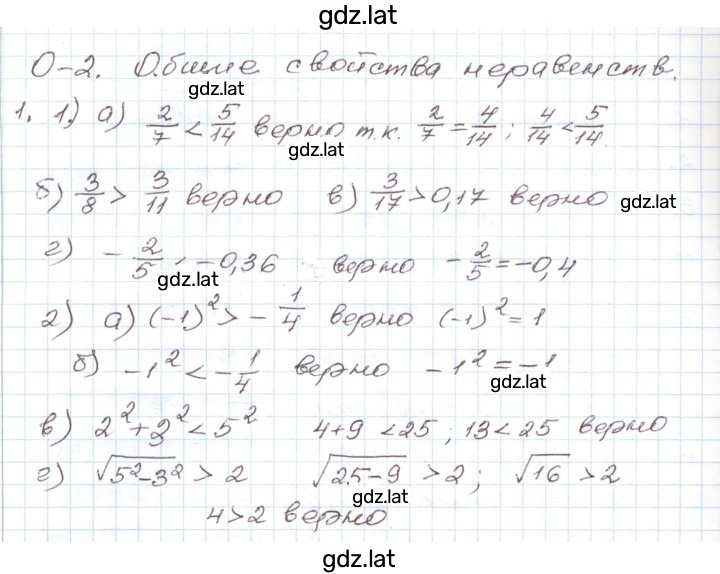 gdz.lat
О-2. Общие свойства неравенств.
gdz.lat
1. 1) а) 2/7 < 5/14 верно т.к. 2/7 = 4/14 ; 4/14 < 5/14
gdz.lat
б) 3/8 > 3/11 верно в) 3/17 > 0,17 верно gdz.lat
г) - 2/5 -0,36 верно - 2/5 = -0,4
gdz.lat
2) а) (-1)² > - 1/4 верно (-1)² = 1
б) -1² < - 1/4 верно -1² = -1
gdz.lat
в) 2² + 3² < 5² 4+9 < 25 ; 13 < 25 верно
г) √(5²-3²) > 2 √(25-9) > 2 ; √16 > 2
gdz.lat
4 > 2 верно
gdz.lat